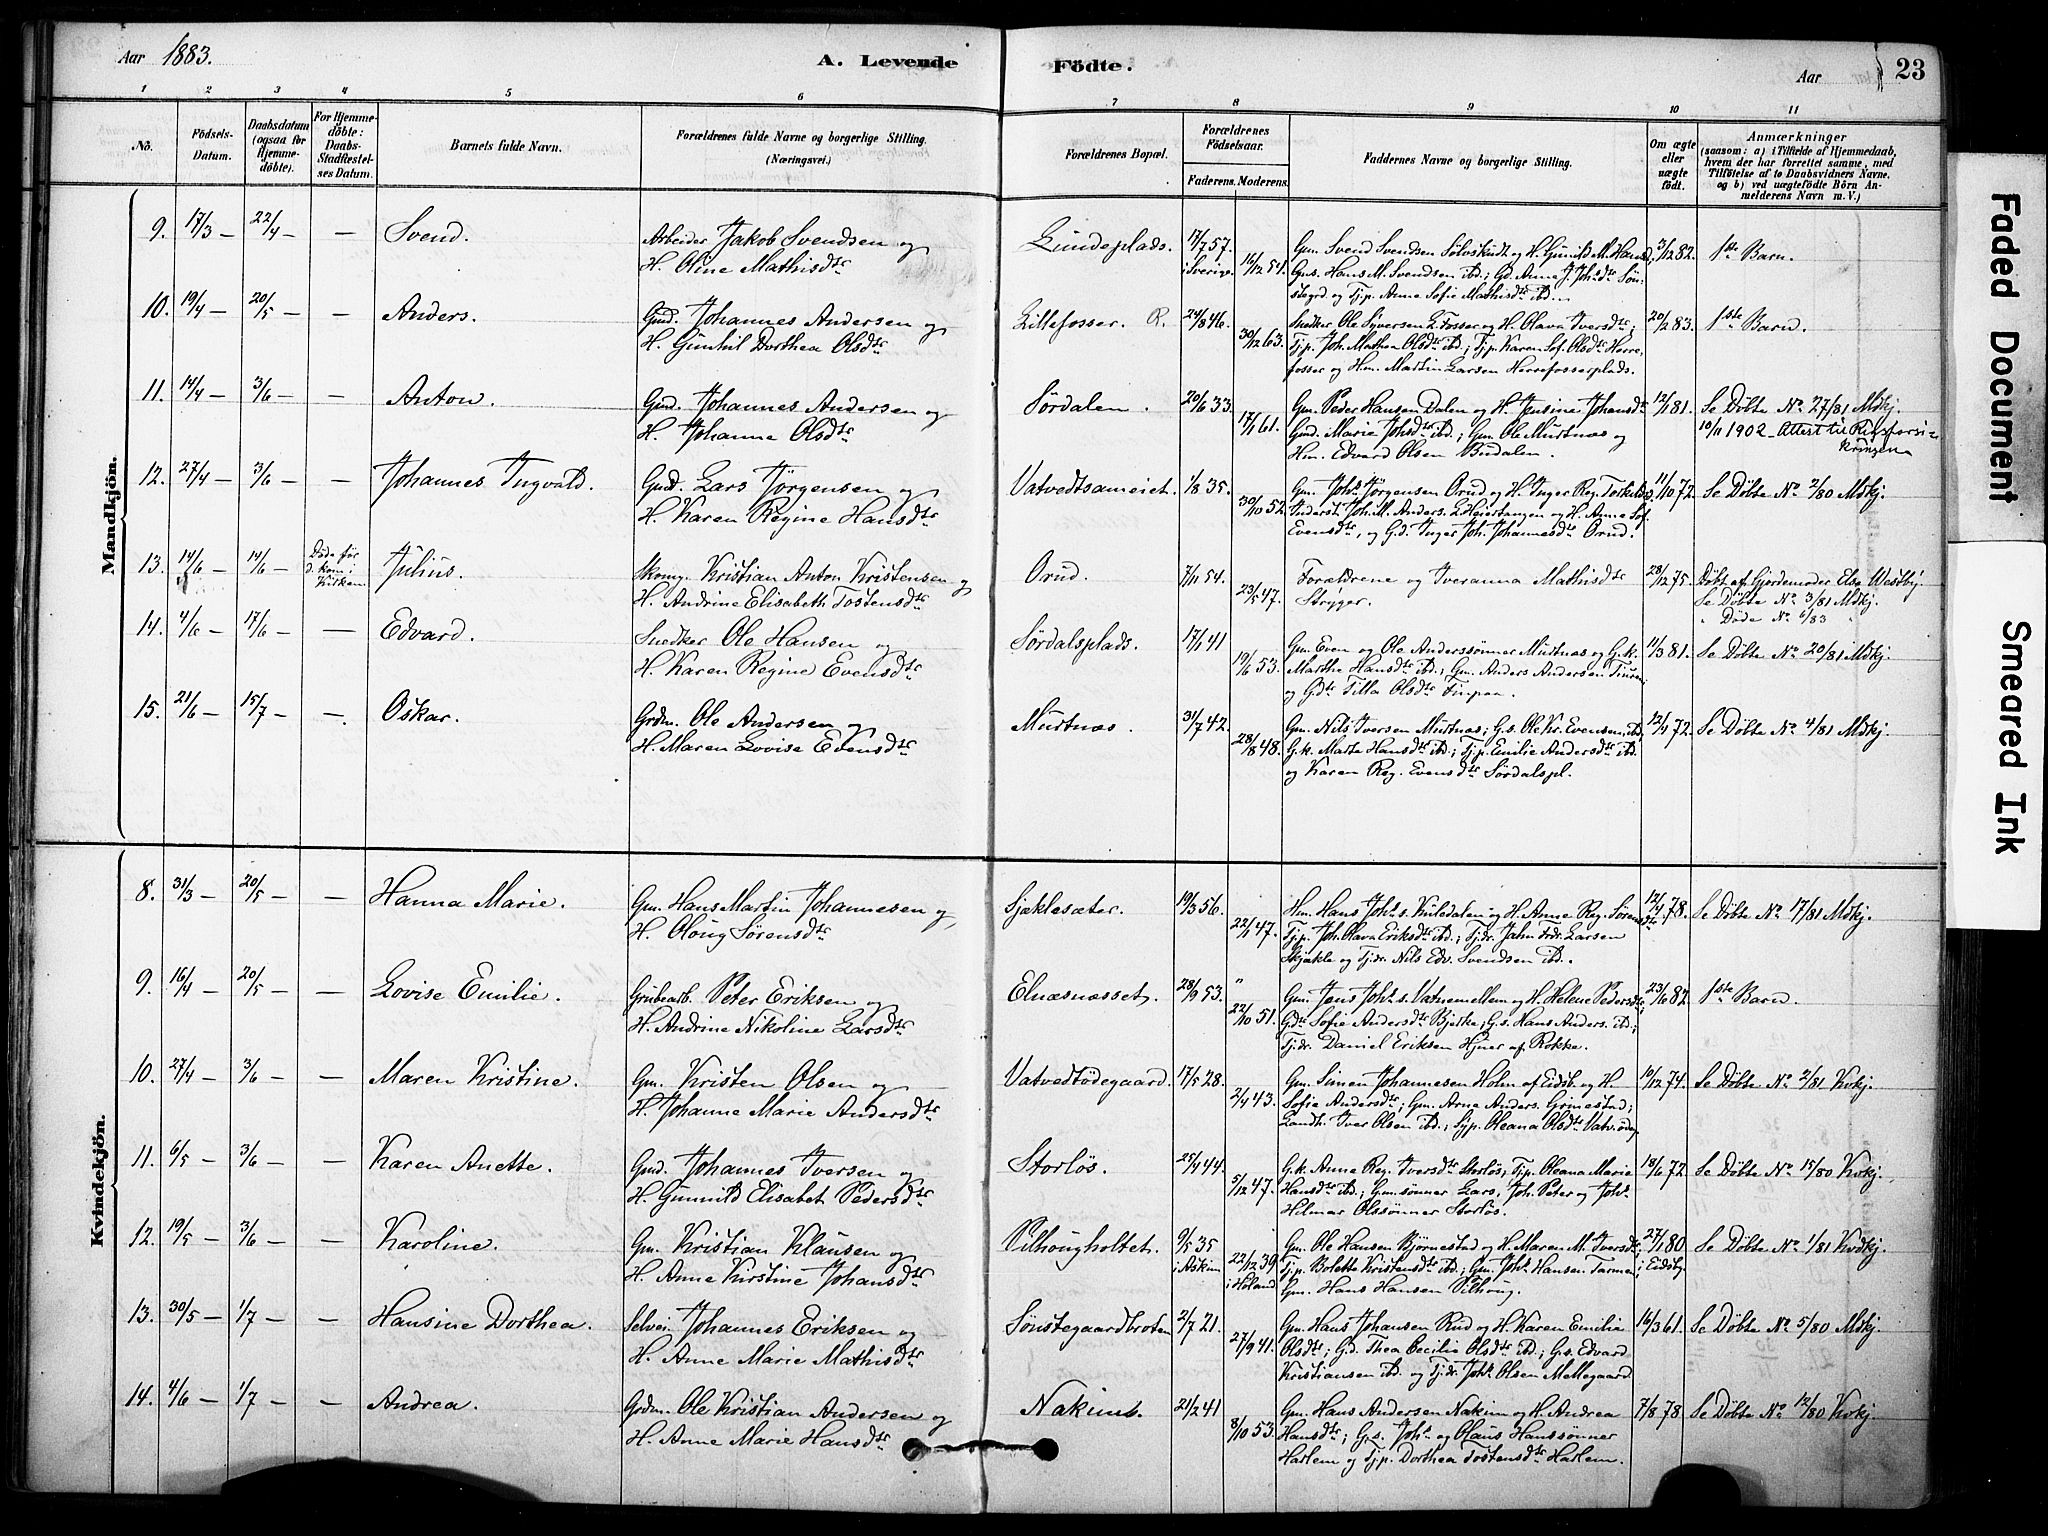 Aar 1883.
A. Levende Födte.
Aar
23
1 2 3 4 5 6 7 8 9 10 11
No.
Födsels-Datum.
Daabsdatum (ogsaa for Hjemme-döbte).
For Hjemme-döbte: Daabs-Stadfæstel-ses Datum.
Barnets fulde Navn.
Forældrenes fulde Navne og borgerlige Stilling.
(Næringsvei.)
Forældrenes Bopæl.
Forældrenes Födselsaar.
Faderens. Moderens.
Faddernes Navne og borgerlige Stilling.
Om ægte eller uægte födt.
Anmærkninger
(saasom: a) i Tilfælde af Hjemmedaab, hvem der har forrettet samme, med Tilföielse af to Daabsvidners Navne. og b) ved uægtefödte Börn An-melderens Navn m. V.)
Mandkjön.
9. 17/3 — 22/4 — — Svend. Arbeider Jakob Svendsen og
H. Oline Mathisdtr
Lundeplads. 17/7 57. i Sverige. 16/12 54.
Gm. Svend Svendsen Sölvskudt og H. Gunild M. Hansd;
Gus. Hans M. Svendsen ibd; Gd. Anne J. Johsdtr Sön-
stegrd. og Tj.p. Anne Sofie Mathisdtr ibd.
3/12 82. 1ste Barn.
10. 19/4 — 20/5 — — Anders. Gmd. Johannes Andersen og
H. Gunhil Dorthea Olsdtr
Lillefosser. R. 24/8 46. 30/12 63.
Snedker Ole Syversen L. Fosser og H. Olava Iversdtr;
Tj.p. Joh. Mathea Olsdtr ibd; Tj.p. Karen Sof. Olsdtr Herre-
fosser og Hm. Martin Larsen Herrefosserplads.
20/2 83. 1ste Barn.
11. 14/4 — 3/6 — — Anton. Gmd. Johannes Andersen og
H. Johanne Olsdtr
Sördalen. 20/6 33. 17/1 61.
Gm. Peder Hansen Dalen og H. Jensine Johansdtr
Gmd. Marie Johsdtr ibd.; Gm. Ole Murtnæs og
Hm. Edvard Olsen Budalen.
12/1 81. Se Döbte No 27/81 Mdkj.
10/11 1902 - Attest til
12. 27/4 — 3/6 — — Johannes Ingvald. Gmd. Lars Jørgensen og
H. Karen Regine Hansdtr
Vatvedtsameiet. 1/8 35. 30/10 52.
Gm. Johs Jörgensen Orud og H. Inger Reg. Torkilds;
Inderst. Joh. M. Anders. L. Heiertangen og H. Anne Sof.
Evensdtr, og G.d. Inger Joh. Johannesdtr Orud.
11/10 72. Se Döbte No 2/80 Mdkj.
13. 14/6 — 14/6 — Döde før d. kom i Kirken. Julius. Skomg. Kristian Anton Kristensen og
H. Andrine Elisabeth Tostensdtr
Orud. 7/11 54. 23/5 47.
Forældrene og Iveranna Mathisdtr
Strÿger.
28/12 75. Döbt af Gjordemoder Else Westby
Se Döbte No 3/81 Mdkj.
" Döde No 6/83 "
14. 4/6 — 17/6 — — Edvard. Snedker Ole Hansen og
H. Karen Regine Evensdtr
Sördalsplads. 17/1 41 19/6 53.
Gm. Even og Ole Anderssönner Murtnæs og G.k.
Marthe Hansdtr ibd; Gm. Anders Andersen
og Gdtr Tilla Olsdtr
11/3 81. Se Döbte No 20/81 Mdkj.
15. 21/6 — 15/7 — — Oskar. Grdm. Ole Andersen og
H. Maren Lovise Evensdtr
Murtnæs. 31/7 42. 28/8 48.
Gm. Nils Iversen Murtnæs; G.s. Ole Kr. Evensen ibd.
G.k. Marta Hansdtr ibd; Tj.p. Emilie Andersdtr ibd
og Karen Reg. Evensdtr Sördalspl.
12/1 72. Se Döbte No 4/81 Mdkj.
Kvindekjön.
8. 31/3 — 20/5 — — Hanna Marie. Gm. Hans Martin Johannesen og
H. Oloug Sörensdtr
Sjæklesæter. 19/3 56. 22/1 47.
Hm. Hans Johs. s. Kuledalen og H. Anne Reg. Sörensdtr
Tj.p. Joh. Olava Eriksdtr ibd.; Tj.dr. Jahn Frdr. Larsen
Skjækle og Tj.dr. Nils Edv. Svendsen ibd.
12/4 78. Se Döbte No 17/81 Mdkj.
9. 16/4 — 20/5 — — Lovise Emilie. Grubearb. Peter Eriksen og
H. Andrine Nikoline Larsdtr
Elnæsnæsset. 28/9 53. " 22/10 51.
Gm. Jens Johs. s. Vatnemellem og H. Helene Pedersdtr;
Gdtr Sofie Andersdtr Bjerke; G.s. Hans Anders. ibd;
Tj.dr. Daniel Eriksen Hjner af Rokke.
23/6 82. 1ste Barn.
10. 27/4 — 3/6 — — Maren Kristine. Gm. Kristen Olsen og
H. Johanne Marie Andersdtr
Vatvedtödegaard. 17/5 28. 2/4 43.
Gm. Simen Johannesen Holm af Eidsb. og H.
Sofie Andersdtr; Gm. Arne Anders. Grimestad;
Landh. Iver Olsen ibd.; Syp. Oleana Olsdtr Vatv.ödeg.
10/12 74. Se Döbte No 2/81 Kvkj.
11. 6/5 — 3/6 — — Karen Anette. Gmd. Johannes Iversen og
H. Gunnild Elisabet Pedersdtr
Storlös. 25/1 44. 5/12 47.
G.k. Anne Reg. Iversdtr Storlös; Tj.p. Oleana Marie
Hansdtr ibd; Gm.sönner Lars, Joh. Peter og Johs
Hilmar Olssönner Storlös.
18/6 72. Se Döbte No 15/80 Kvkj.
12. 19/5 — 3/6 — — Karoline. Gm. Kristian Klausen og
H. Anne Kirstine Johansdtr
Vilhougholtet. 9/5 35 i Askim 22/12 39 i Höland
Gm. Ole Hansen Bjørnestad og H. Maren M. Iversdtr;
Tj.p. Bolette Kristensdtr ibd; Gm. Johs Hansen Tarmen;
Gm. Hans Hansen Vilhoug.
27/1 80 i Eidsbg. Se Döbte No 1/81 Kvdkj.
13. 30/5 — 1/7 — — Hansine Dorthea. Selvei. Johannes Eriksen og
H. Anne Marie Mathisdtr
Sönstegaardbroten 2/7 21. 27/9 41.
Gm. Hans Johansen Rud og H. Karen Emilie
Olsdtr; G.d. Thea Cecilie Olsdtr ibd.; G.s. Edvard
Kristiansen ibd. og Tj.dr. Johs Olsen Mellegaard.
16/3 61. Se Döbte No 5/80 Mdkj.
14. 4/6 — 1/7 — — Andrea. Grdm. Ole Kristian Andersen og
H. Anne Marie Hansdtr
Nakim. 21/2 41 8/10 53.
Gm. Hans Andersen Nakim og H. Andrea
Hansdtr; G.s. Johs og Olaus Hanssönner
Harlem og Tj.p. Dorthea Tostensdtr Harlem.
7/8 78. Se Döbte No 12/80 Kvkj.
Faded Document
Smeared Ink